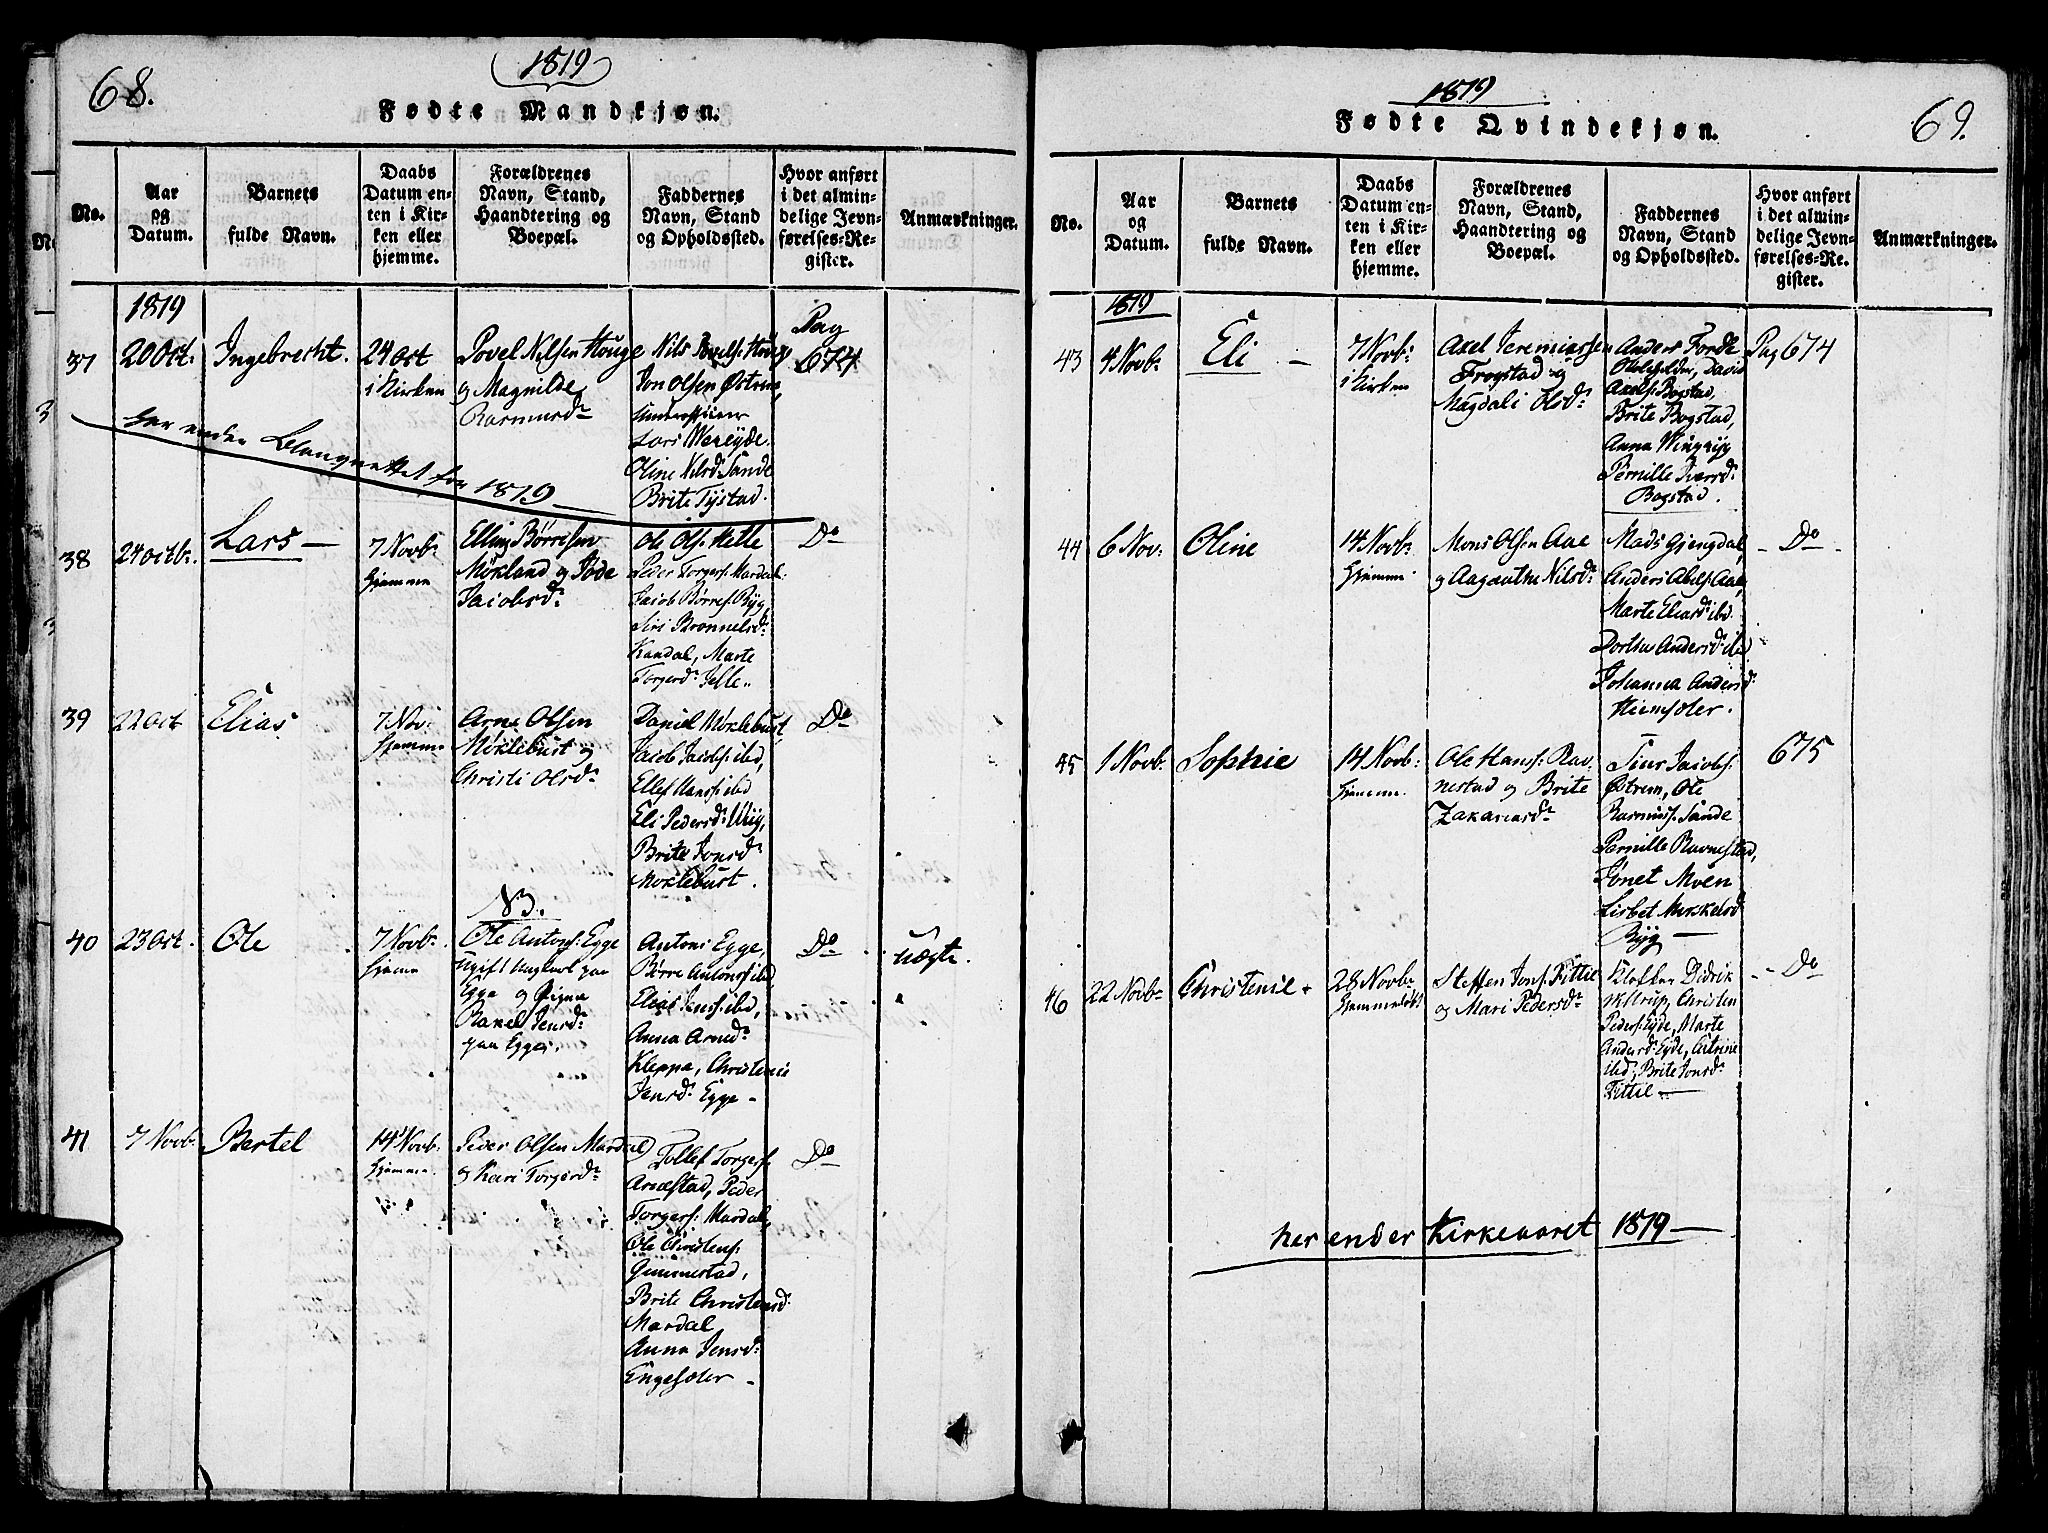 68.
1819
Fødte Mandkjøn.
No.
Aar
og
Datum.
Barnets
fulde Navn.
Daabs
Datum en-
ten i Kir-
ken eller
hjemme.
Forældrenes
Navn, Stand,
Haandtering og
Boepæl.
Faddernes
Navn, Stand
og Opholdssted.
Hvor anført
i det almin-
delige Jevn-
førelses-Re-
gister.
Anmærkninger.
1819
37
20 Oct.
Ingebrecht.
24 Oct
i Kirken
Povel Nilsen Houge
og Magnilde
Rasmusdr
Nils Povels: Houge
Jon Olsen Østrem,
Underofficeer
Lars Wereyde
Oline Nilsd: Sande
Brite Tystad.
Pag
674
her ender Blanquettet for 1819
38
24 octbr.
Lars
7 Novbr
hjemme
Elling Børresen
Møkland og
Jacobsdr
Ole Ols: Helle
Peder Torgers: Mardal
Jacob Børres: Byg,
Siri Brønnelsdr
Kandal, Marte
Torgersdr
Do
39
22 Oct
Elias
7 Nov:
hjemme
Arne Olsen
Møklebust og
Christi Olsdr
Daniel Møklebust,
Jacob Jacobs: ibd,
Ellef Hans: ibd
Eli Pedersdr
Brite Jonsdr
Møklebust.
Do
40
23 Oct.
Ole
7 Novbr
hjemme
NB.
Ole Antons: Egge
Ugift Ungkarl paa
Egge og Pigen
Rakel Jensdr
paa Egge.
Antoni Egge,
Børre Antons: ibd
Elias Jens: ibd,
Anna Arnedr
Kleppa, Christense
Jensdr Egge -
Do
uægte.
41
7 Novb:
Bertel
14 Novb:
hjemme
Peder Olsen Mardal
og Kari Torgersdr
Tollef Torgers:
Arnestad, Peder
Torgers: Mardal,
Ole Christens:
Gimmestad,
Brite Christensd:
Mardal
Anna Jensd:
Engesæter -
Do
69.
1819
Fødte Qvindekjøn.
No.
Aar
og
Datum.
Barnets
fulde Navn.
Daabs
Datum en-
ten i Kir-
ken eller
hjemme.
Forældrenes
Navn, Stand,
Haandtering og
Boepæl.
Faddernes
Navn, Stand
og Opholdssted.
Hvor anført
i det almin-
delige Jevn-
førelses-Re-
gister.
Anmærkninger.
1819
43
4 Novbr
Eli
7 Novb:
i Kirken
Axel Jeremiassen
Frøgstad og
Magdali Olsdr
Anders Forde
David
Axels: Bogstad,
Brite Bogstad,
Anna
Pernille Iversdr
Bogstad.
Pag 674
44
6 Nov:
Oline
14 Novb:
hjemme.
Mons Olsen Aae
og Aagaathe Nilsdr
Mads Gjengdal,
Anders Abels: Aae,
Marte Eliasd: ibd.
Dorthe Andersd: ibd
Johanna Andersd
Hiemsæter.
- Do -
45
1 Novb:
Sophie
14 Novb:
hjemme.
Ole Hans: Rav-
nestad og Brite
Zakariasdr
Siur Jacobs:
Østrem, Ole
Rasmuss: Sande
Pernille Ravnestad,
Jonet Moen
Lisbet Mikkelsd:
Byg
675
46
22 Novbr
Christense
28 Novbr
Steffen Jons: Fittie
og Mari Pedersdr
Klokker Didrik
Christen
Peders: Eyde, Marte
Andersd: Eyde, Catrine
ibd, Brite Jonsdr
Fittie
Do
her ender Kirkeaaret 1819